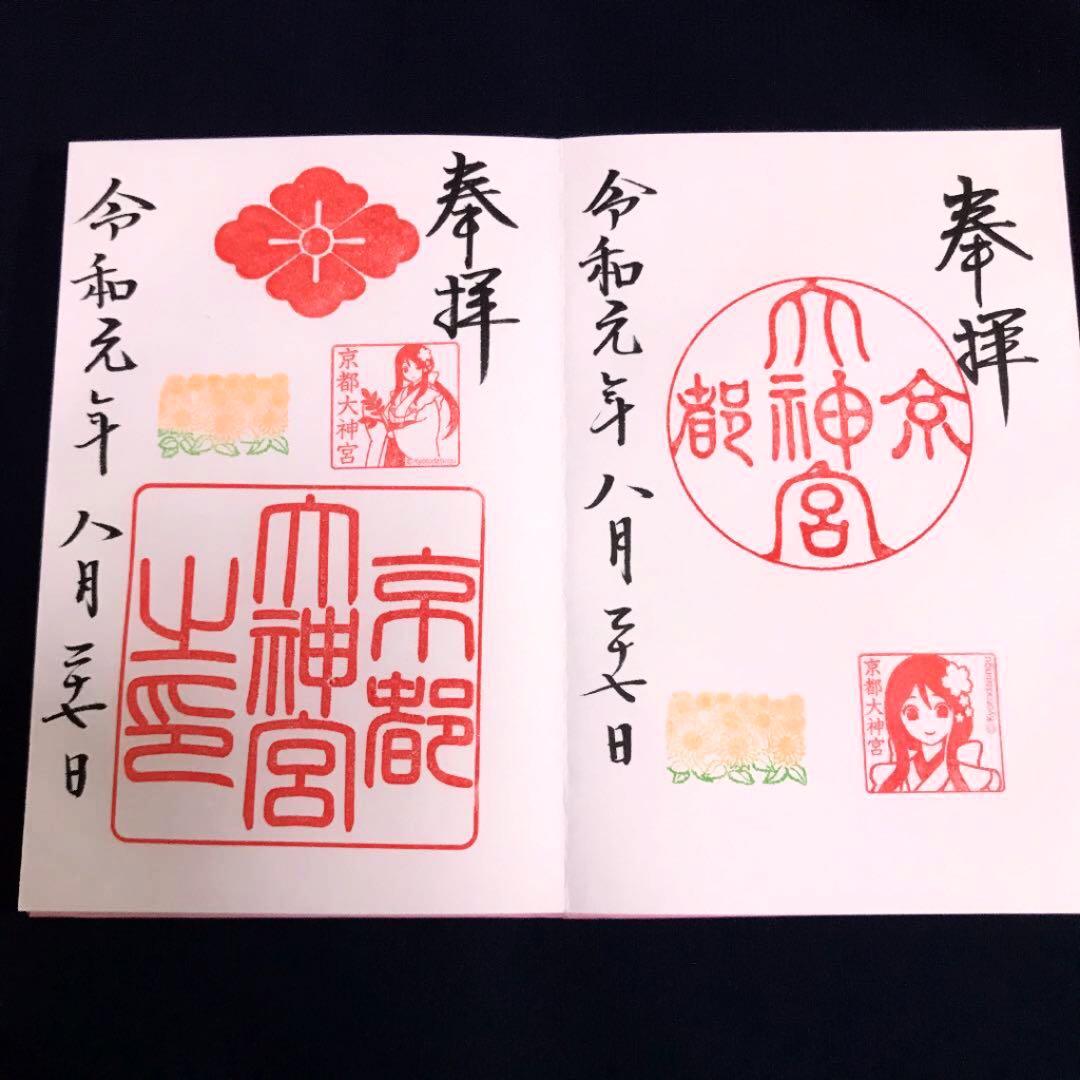 奉拝
京都大神宮
令和元年 八月二十七日
京都大神宮
奉拝
京都大神宮
京都大神宮之印
令和元年 八月二十七日